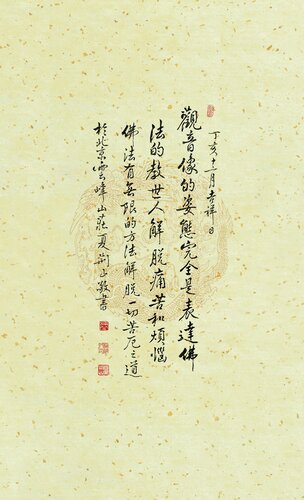 丁亥十二月吉祥日
觀音像的姿態完全是表達佛
法的教世人解脫痛苦和煩惱
佛法有無限的方法解脫一切苦厄之道
於北京雲峰山莊夏荊山敬書